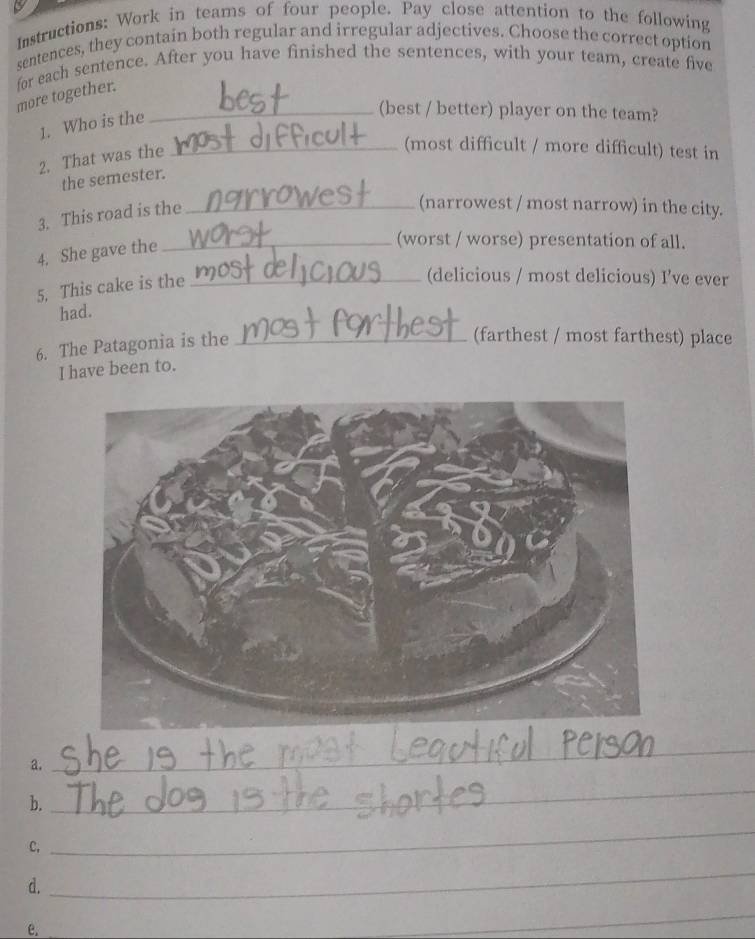 Instructions: Work in teams of four people. Pay close attention to the following
sentences, they contain both regular and irregular adjectives. Choose the correct option
for each sentence. After you have finished the sentences, with your team, create five
more together.
1. Who is the best (best / better) player on the team?
2. That was the most difficult (most difficult / more difficult) test in
the semester.
3. This road is the narrowest (narrowest / most narrow) in the city.
4. She gave the worst (worst / worse) presentation of all.
5. This cake is the most delicious (delicious / most delicious) I've ever
had.
6. The Patagonia is the most farthest (farthest / most farthest) place
I have been to.
a. She is the most beautiful person
b. The dog is the shortes
c.
d.
e.